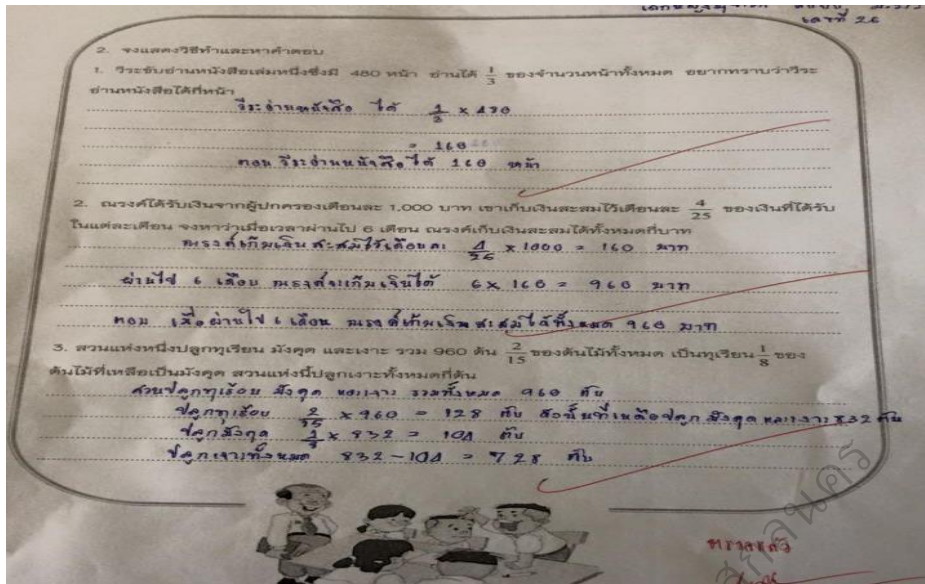 เลขที่ 26
2. จงแสดงวิธีทำและหาคำตอบ
1. วีระขับอ่านหนังสือเล่มหนึ่งซึ่งมี 480 หน้า อ่านได้ 1/3 ของจำนวนหน้าทั้งหมด อยากทราบว่าวีระ
อ่านหนังสือได้กี่หน้า
วีระอ่านหนังสือ ได้ 1/3 × 480
= 160
ตอบ วีระอ่านหนังสือได้ 160 หน้า
2. ณรงค์ได้รับเงินจากผู้ปกครองเดือนละ 1,000 บาท เขาเก็บเงินสะสมไว้เดือนละ 4/25 ของเงินที่ได้รับ
ในแต่ละเดือน จงหาว่าเมื่อเวลาผ่านไป 6 เดือน ณรงค์เก็บเงินสะสมได้ทั้งหมดกี่บาท
ณรงค์เก็บเงินสะสมไว้เดือนละ 4/25 × 1000 = 160 บาท
ผ่านไป 6 เดือน ณรงค์จะเก็บเงินได้ 6 × 160 = 960 บาท
ตอบ เมื่อผ่านไป 6 เดือน ณรงค์เก็บเงินสะสมได้ทั้งหมด 960 บาท
3. สวนแห่งหนึ่งปลูกทุเรียน มังคุด และเงาะ รวม 960 ต้น 2/15 ของต้นไม้ทั้งหมด เป็นทุเรียน 1/8 ของ
ต้นไม้ที่เหลือเป็นมังคุด สวนแห่งนี้ปลูกเงาะทั้งหมดกี่ต้น
สวนปลูกทุเรียน มังคุด และเงาะ รวมทั้งหมด 960 ต้น
ปลูกทุเรียน 2/15 × 960 = 128 ต้น ดังนั้นที่เหลือปลูก มังคุด และเงาะ 832 ต้น
ปลูกมังคุด 1/8 × 832 = 104 ต้น
ปลูกเงาะทั้งหมด 832 - 104 = 728 ต้น
ตรวจแล้ว